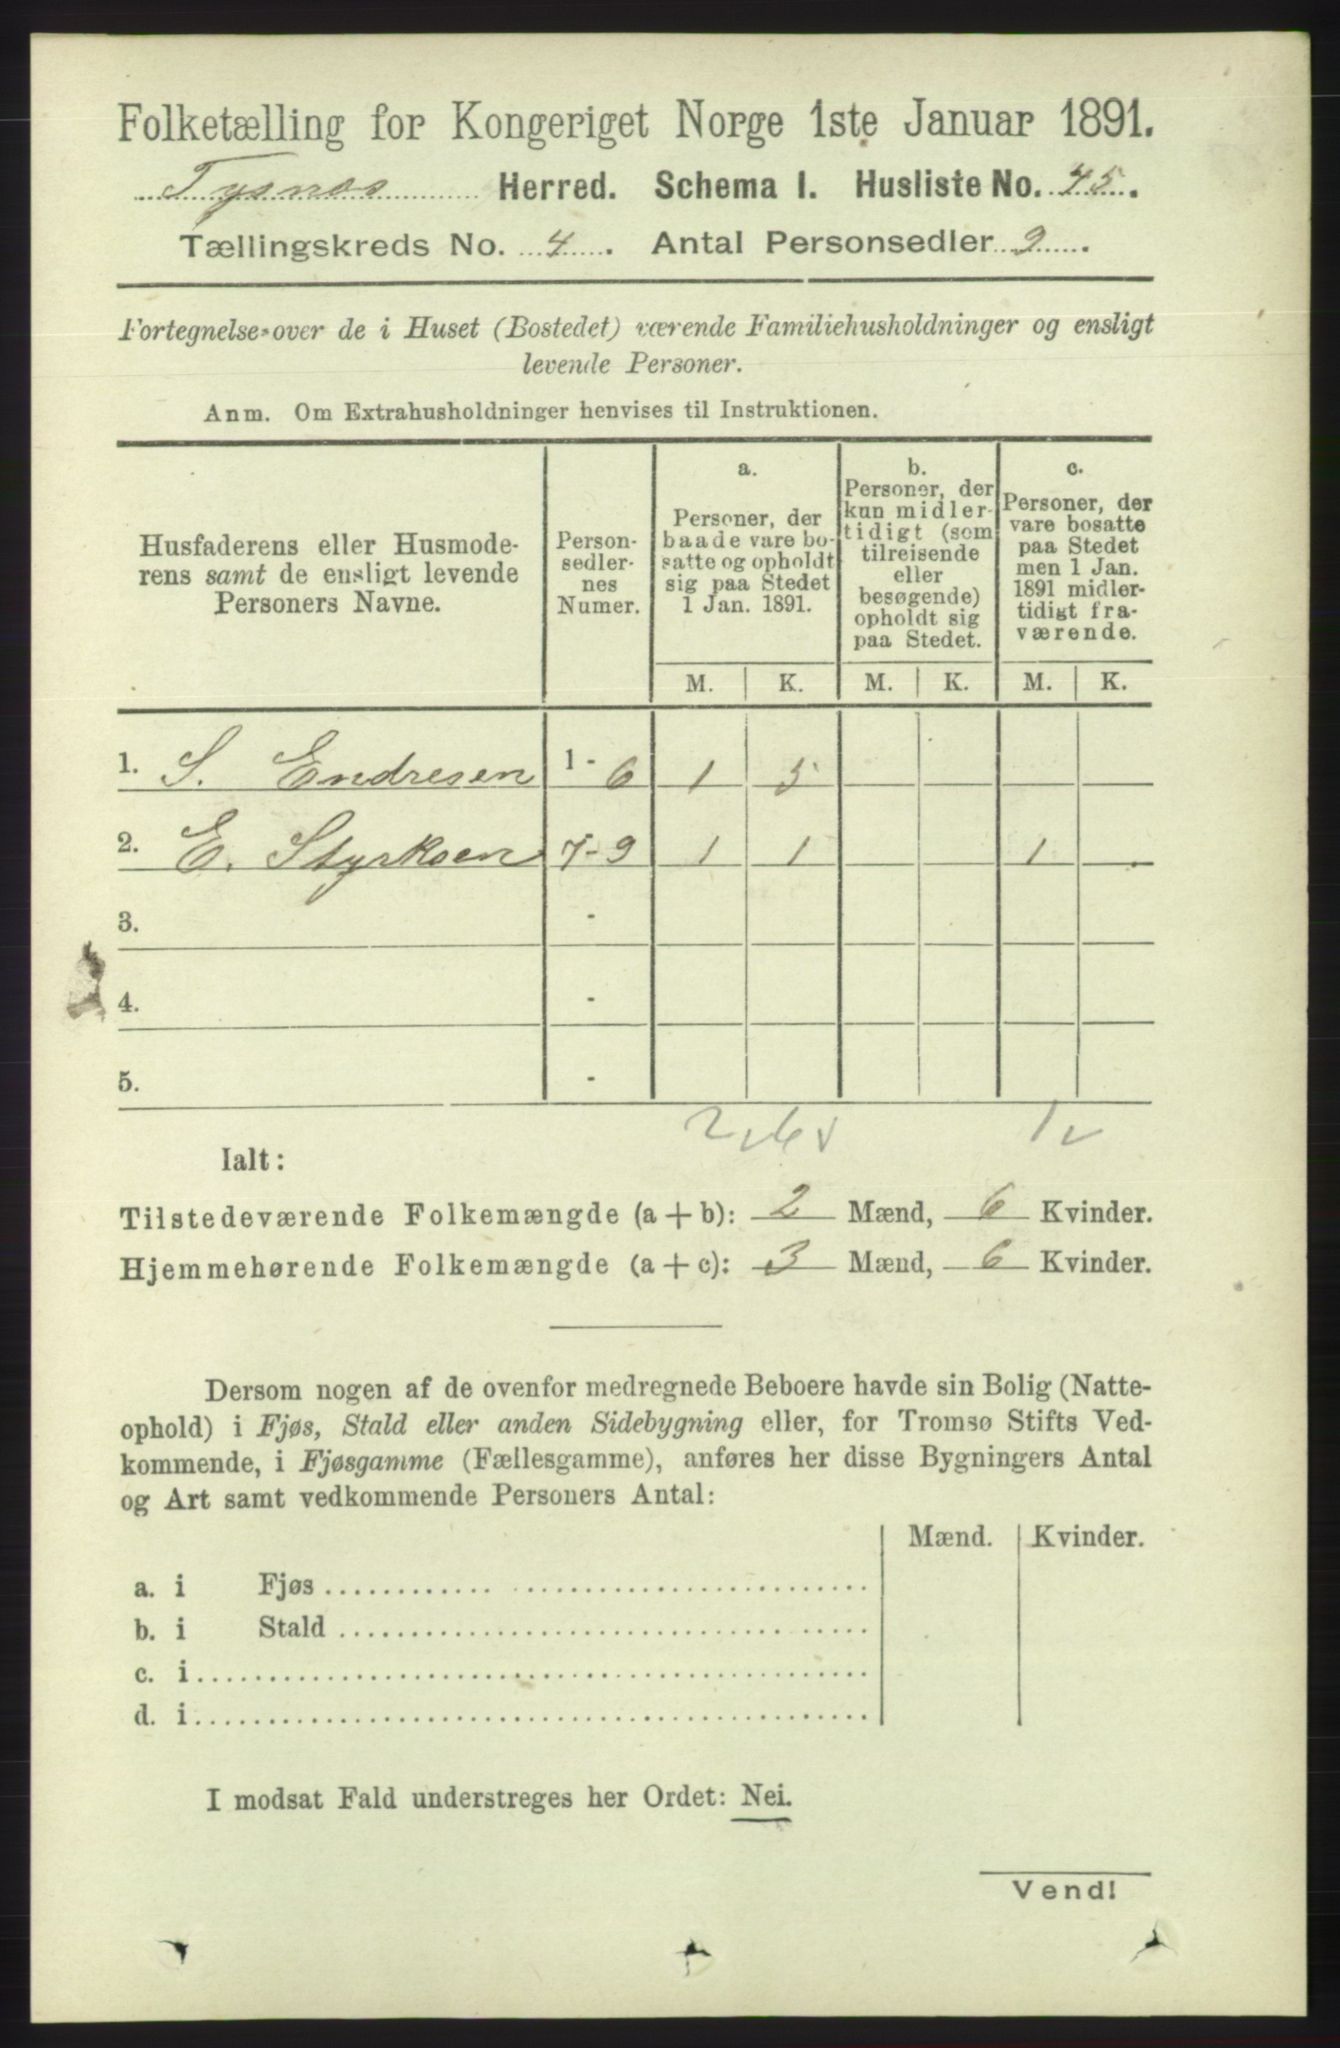 Folketælling for Kongeriget Norge 1ste Januar 1891.
Tysnæs Herred. Schema I. Husliste No. 45.
Tællingskreds No. 4. Antal Personsedler 9.
Fortegnelse over de i Huset (Bostedet) værende Familiehusholdninger og ensligt
levende Personer.
Anm. Om Extrahusholdninger henvises til Instruktionen.
Husfaderens eller Husmode-
rens samt de ensligt levende
Personers Navne.
Person-
sedler-
nes
Numer.
a.
Personer, der
baade vare bo-
satte og opholdt
sig paa Stedet
1 Jan. 1891.
b.
Personer, der
kun midler-
tidigt (som
tilreisende
eller
besøgende)
opholdt sig
paa Stedet.
c.
Personer, der
vare bosatte
paa Stedet
men 1 Jan.
1891 midler-
tidigt fra-
værende.
M. K. M. K. M. K.
1. S. Endresen 1-6 1 5
2. E. Styrksen 7-9 1 1 1 .
3. -
4. -
5. -
2 6 1
Ialt:
Tilstedeværende Folkemængde (a + b): 2 Mænd, 6 Kvinder.
Hjemmehørende Folkemængde (a + c): 3 Mænd, 6 Kvinder.
Dersom nogen af de ovenfor medregnede Beboere havde sin Bolig (Natte-
ophold) i Fjøs, Stald eller anden Sidebygning eller, for Tromsø Stifts Ved-
kommende, i Fjøsgamme (Fællesgamme), anføres her disse Bygningers Antal
og Art samt vedkommende Personers Antal:
Mænd. Kvinder.
a. i Fjøs
b. i Stald
c. i
d. i
I modsat Fald understreges her Ordet: Nei.
Vend!